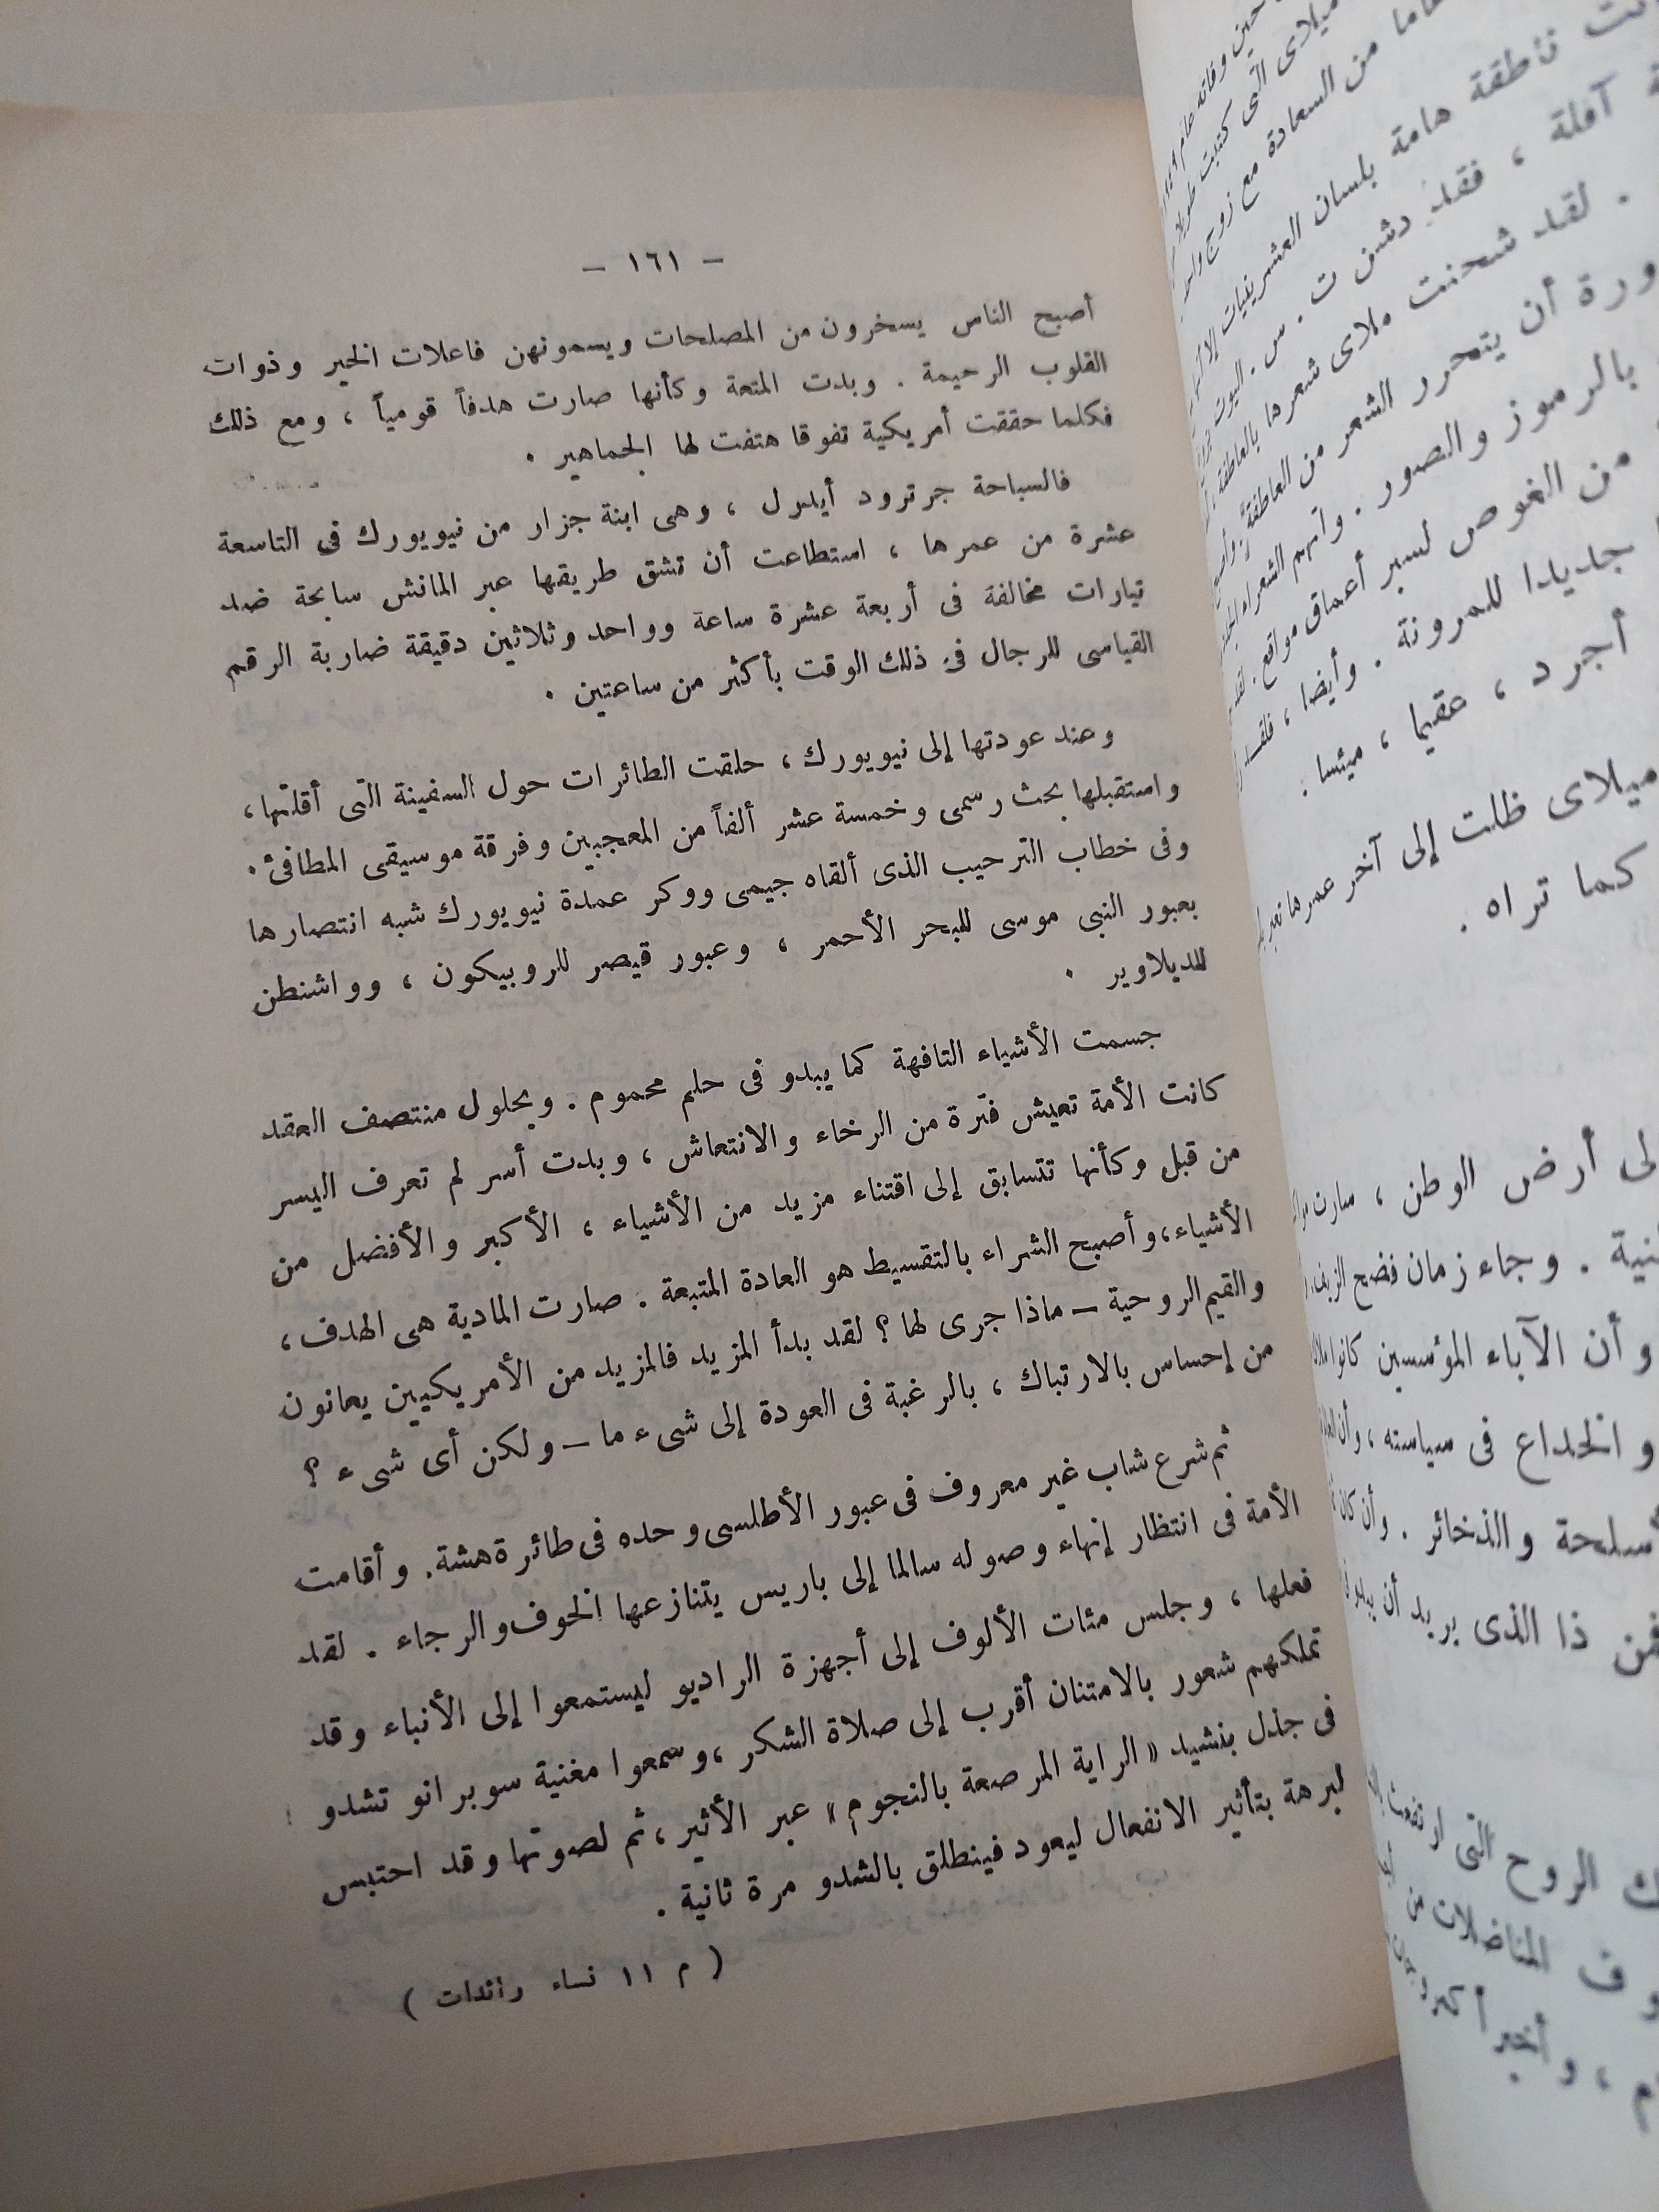 — ١٦١ —
أصبح الناس يسخرون من المصلحات ويسمونهن فاعلات الخير وذوات
القلوب الرحيمة . وبدت المتعة وكأنها صارت هدفاً قومياً ، ومع ذلك
فكلما حققت أمريكية تفوقا هتفت لها الجماهير .
فالسباحة جرترود أيدرل ، وهى ابنة جزار من نيويورك فى التاسعة
عشرة من عمرها ، استطاعت أن تشق طريقها عبر المانش سابحة ضد
تيارات مخالفة فى أربعة عشرة ساعة وواحد وثلاثين دقيقة ضاربة الرقم
القياسى للرجال فى ذلك الوقت بأكثر من ساعتين .
وعند عودتها إلى نيويورك ، حلقت الطائرات حول السفينة التى أقلتها ،
واستقبلها بحث رسمى وخمسة عشر ألفاً من المعجبين وفرقة موسيقى المطافئ .
وفى خطاب الترحيب الذى ألقاه جيمى ووكر عمدة نيويورك شبه انتصارها
بعبور النبى موسى للبحر الأحمر ، وعبور قيصر للروبيكون ، وواشنطن
للديلاوير .
جسمت الأشياء التافهة كما يبدو فى حلم محموم . وبحلول منتصف العقد
كانت الأمة تعيش فترة من الرخاء والانتعاش ، وبدت أسر لم تعرف اليسر
من قبل وكأنها تتسابق إلى اقتناء مزيد من الأشياء ، الأكبر والأفضل من
الأشياء ، وأصبح الشراء بالتقسيط هو العادة المتبعة . صارت المادية هى الهدف ،
والقيم الروحية — ماذا جرى لها ؟ لقد بدأ المزيد فالمزيد من الأمريكيين يعانون
من إحساس بالارتباك ، بالرغبة فى العودة إلى شىء ما — ولكن أى شىء ؟
ثم شرع شاب غير معروف فى عبور الأطلسى وحده فى طائرة هشة . وأقامت
الأمة فى انتظار إنهاء وصوله سالما إلى باريس يتنازعها الخوف والرجاء . لقد
فعلها ، وجلس مئات الألوف إلى أجهزة الراديو ليستمعوا إلى الأنباء وقد
تملكهم شعور بالامتنان أقرب إلى صلاة الشكر ، وسمعوا مغنية سوبرانو تشدو
فى جذل بنشيد « الراية المرصعة بالنجوم » عبر الأثير ، ثم لصوتها وقد احتبس
لبرهة بتأثير الانفعال ليعود فينطلق بالشدو مرة ثانية .
( م ١١ نساء رائدات )
حين وفاته عام
ميلاى التى كتبت طويلا
من السعادة مع زوج
ناطقة هامة بلسان العشرينيات
آفلة ، فقد دشن ت . س . اليوت
. لقد شحنت ملاى شعرها بالعاطفة
أن يتحرر الشعر من العاطفة
بالرموز والصور . واتهم الشعراء
من الغوص لسبر أعماق مواقع . لقد
جديدا للمرونة . وأيضا ، فلقد
أجرد ، عقيما ، ميئسا :
ميلاى ظلت إلى آخر عمرها
كما تراه .
أرض الوطن ، سارت
. وجاء زمان فضح الزيف
وأن الآباء المؤسسين كانوا
والخداع فى سياسته ، وأن
والذخائر . وأن كان
ذا الذى يريد أن
الروح التى ارتفعت
المناضلات من